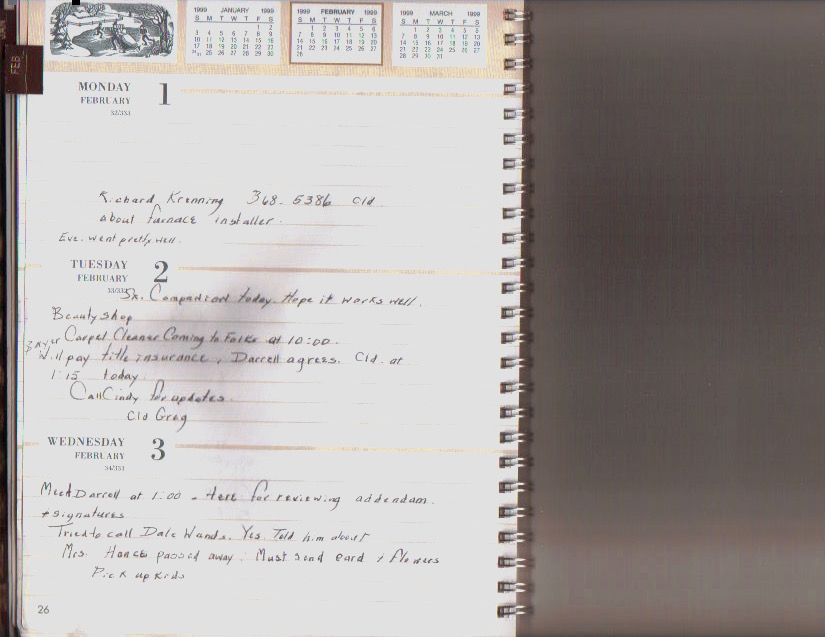 1999 JANUARY
S M T W T F S
1 2
3 4 5 6 7 8 9
10 11 12 13 14 15 16
17 18 19 20 21 22 23
24/31 25 26 27 28 29 30
1999 FEBRUARY
S M T W T F S
1 2 3 4 5 6
7 8 9 10 11 12 13
14 15 16 17 18 19 20
21 22 23 24 25 26 27
28
1999 MARCH
S M T W T F S
1 2 3 4 5 6
7 8 9 10 11 12 13
14 15 16 17 18 19 20
21 22 23 24 25 26 27
28 29 30 31
FEB
MONDAY 1
FEBRUARY
32/333
Richard Krenning 368-5386 Cld
about furnace installer.
Eve. went pretty well.
TUESDAY 2
FEBRUARY
33/332
Companion today. Hope it works well.
Beauty shop
Carpet Cleaner Coming to Folks at 10:00.
Buyer
Will pay title insurance, Darrell agrees. Cld. at
1:15 today.
Call Cindy for updates.
Cld Greg
WEDNESDAY 3
FEBRUARY
34/331
Meet Darrell at 1:00 - Here for reviewing addendam
+ signatures
Tried to call Dale Wands. Yes. Told him about
Mrs. passed away. Must send card + flowers
Pick up Kids
26